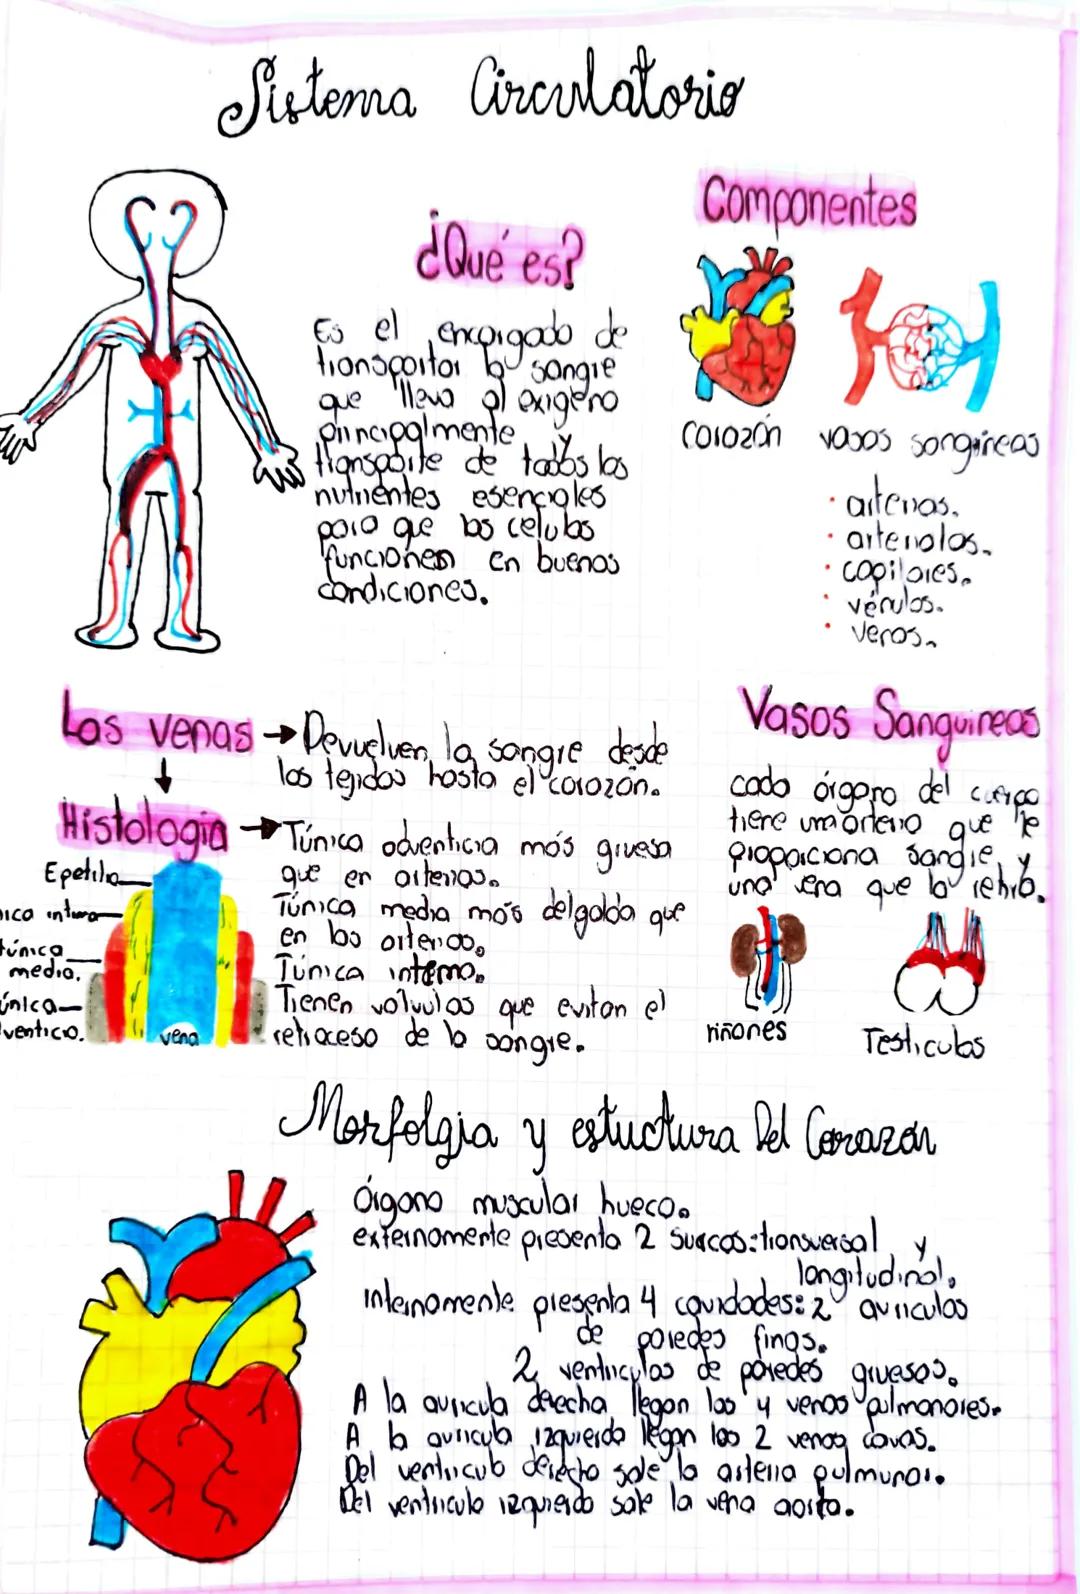 Sistema Circulatorio
Componentes
¿Qué es?
Es el encargado de
transportar la sangre
que lleva al oxigeno
principalmente y
transporte de todos los
nutrientes esenciales
para que las celulas
funcionen en buenas
condiciones.
corazón
vasos sangineas
· arterias.
· arteriolas.
· capilares.
· vénulas.
· venas.
Las venas → Devuelven la sangre desde
los tejidos hasta el corazón.
Vasos Sanguineos
cada órgano del cuerpo
tiene una arteria que le
proporciona sangre, y
una vena que la retira.
riñones
Testiculos
Histologia → Túnica adventicia más gruesa
que en arterias.
Túnica media más delgada que
en las arterias.
Túnica interna.
Tienen valvulas que evitan el
retroceso de la sangre.
Epetilio
nica intura
túnica
media.
única
venticia.
vena
Morfolgia y estuctura Del Corazón
órgano muscular hueco.
externamente presenta 2 surcos: transversal y
longitudinal.
internamente presenta 4 cavidades: 2 auriculas
de paredes finas.
2 ventriculos de paredes gruesas.
A la auricula derecha llegan las 4 venas pulmonares.
A la auricula izquierda llegan las 2 venas cavas.
Del ventriculo derecho sale la arteria pulmunar.
Del ventriculo izquierdo sale la vena aorta.